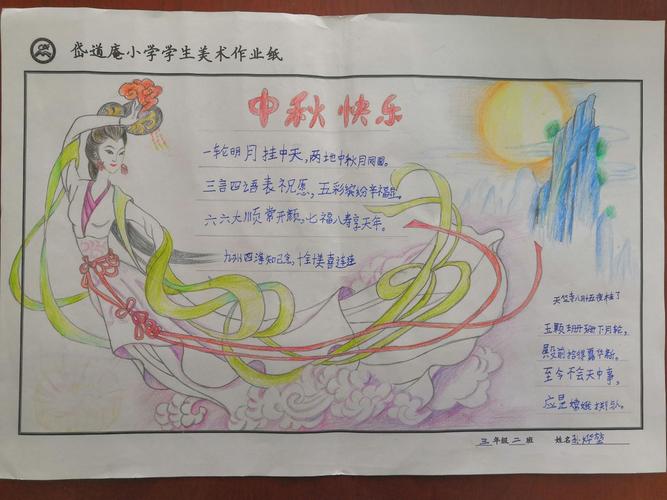 岱道庵小学学生美术作业纸
中秋快乐
一轮明月挂中天,两地中秋月同圆。
三言四语表祝愿,五彩缤纷幸福
六六大顺常开颜,七福八寿享天年。
九州四海知己念,十全十美喜连连
天竺寺八月十五夜桂子
玉颗珊珊下月轮,
殿前拾得露华新。
至今不会天中事,
应是嫦娥掷与人。
三年级二班 姓名